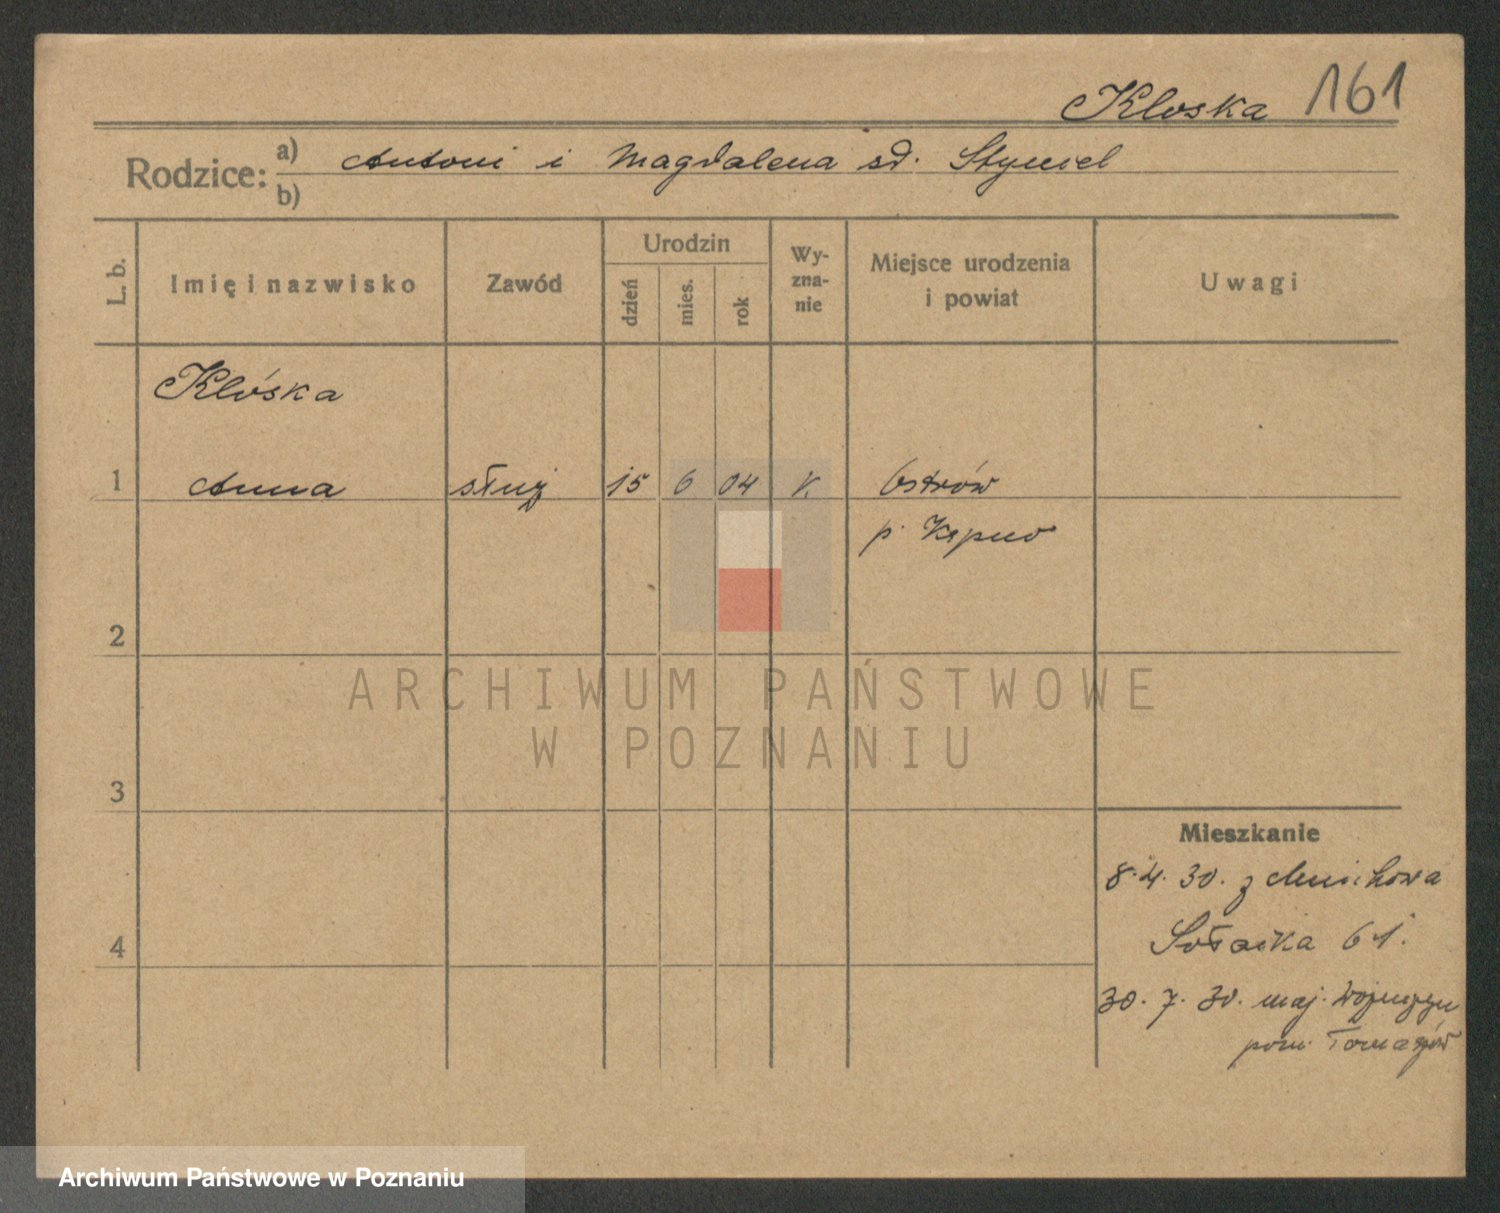 Kloska 161
Rodzice: a) Antoni i Magdalena sd. Stymel
b)
L. b. Imię i nazwisko Zawód Urodzin dzień mies. rok Wy-zna-nie Miejsce urodzenia i powiat Uwagi
Klóska
1 Anna służ 15 6 04 K Ostrów
p. Kępno
2
3
4
Mieszkanie
8.4.30. z
Sołacka 61.
30.7.30. maj.
pow.
ARCHIWUM PAŃSTWOWE
W POZNANIU
Archiwum Państwowe w Poznaniu